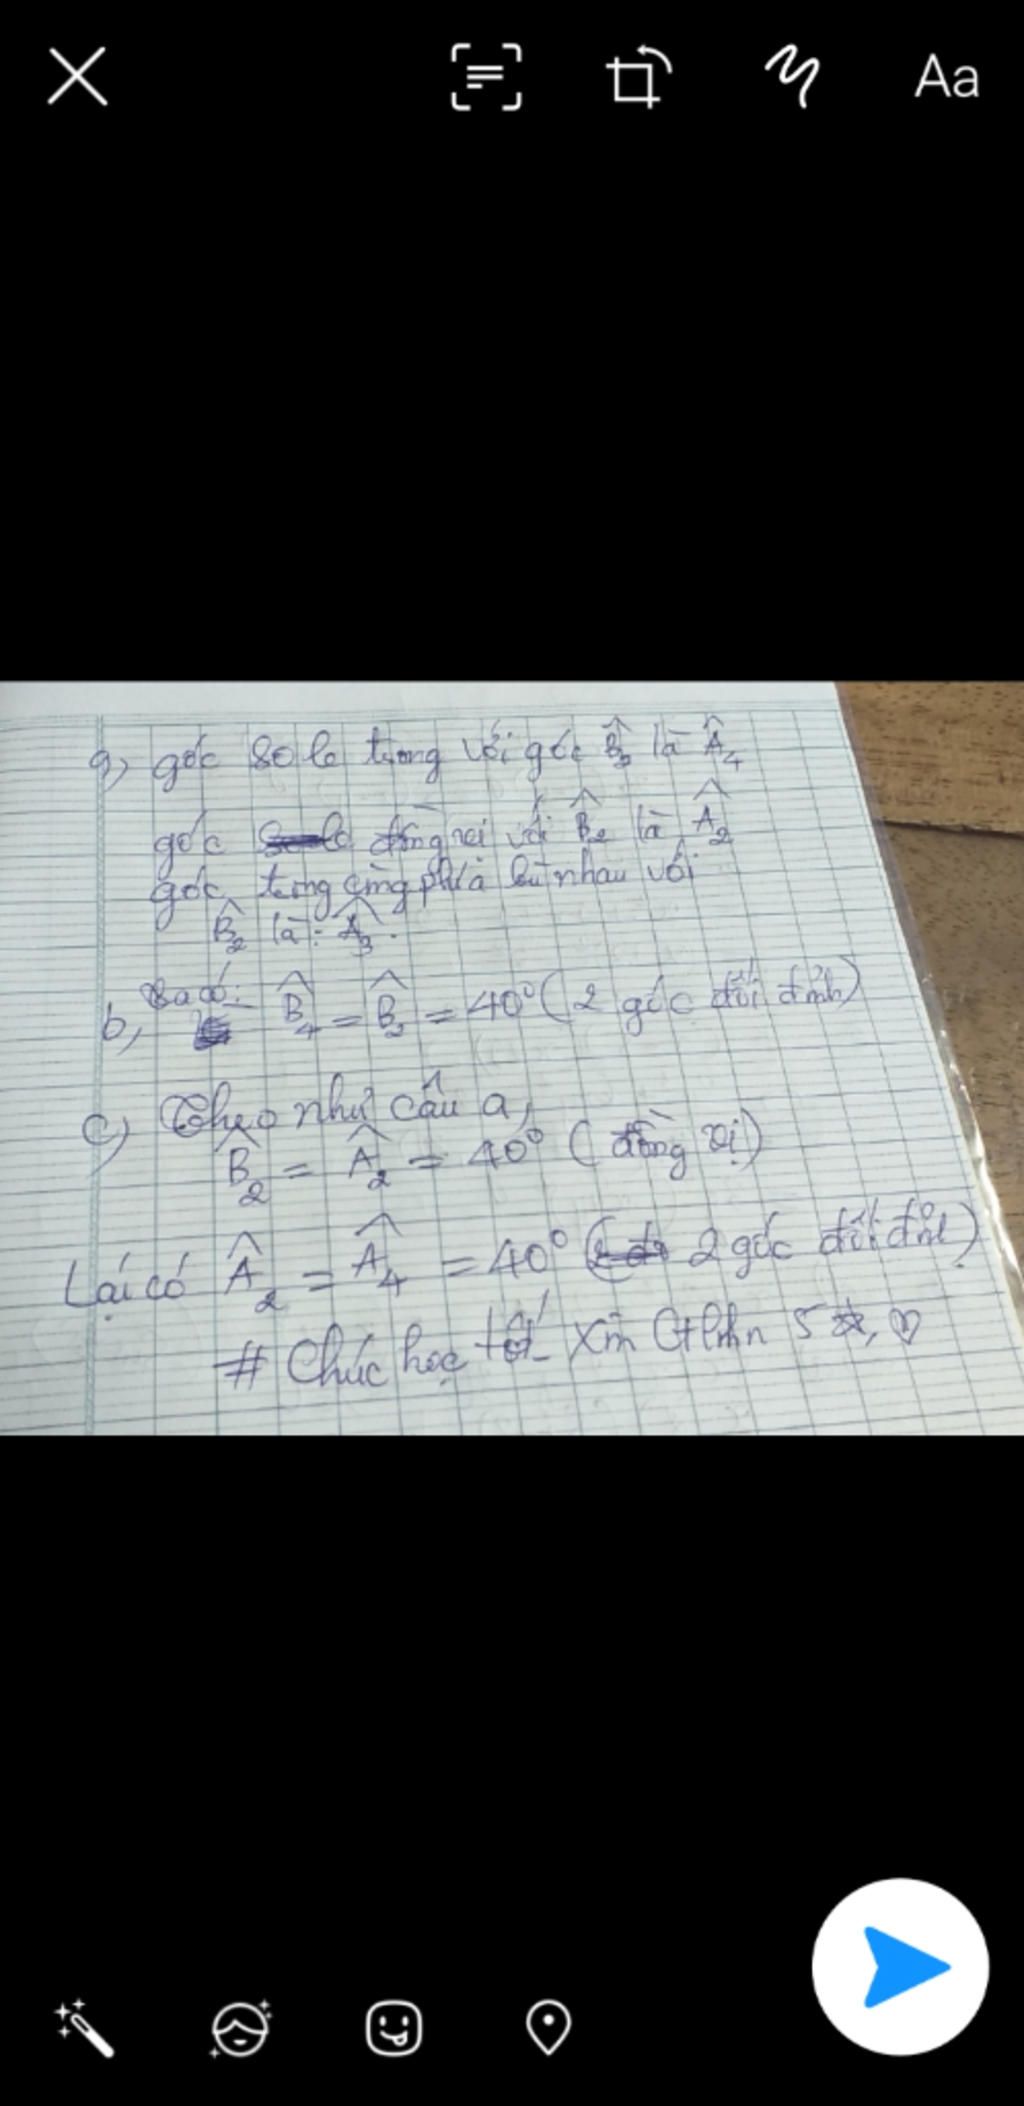 Aa
a, góc so le trong với góc B̂₂ là Â₄
góc đồng vị với B̂₂ là Â₂
góc trong cùng phía bù nhau với
B̂₂ là: Â₃.
b, Ta có: B̂₄ = B̂₂ = 40° (2 góc đối đỉnh)
c) Theo như câu a,
B̂₂ = Â₂ = 40° (đồng vị)
Lại có Â₂ = Â₄ = 40° (2 góc đối đỉnh)
# Chúc học tốt xin 5 ☆, ♡